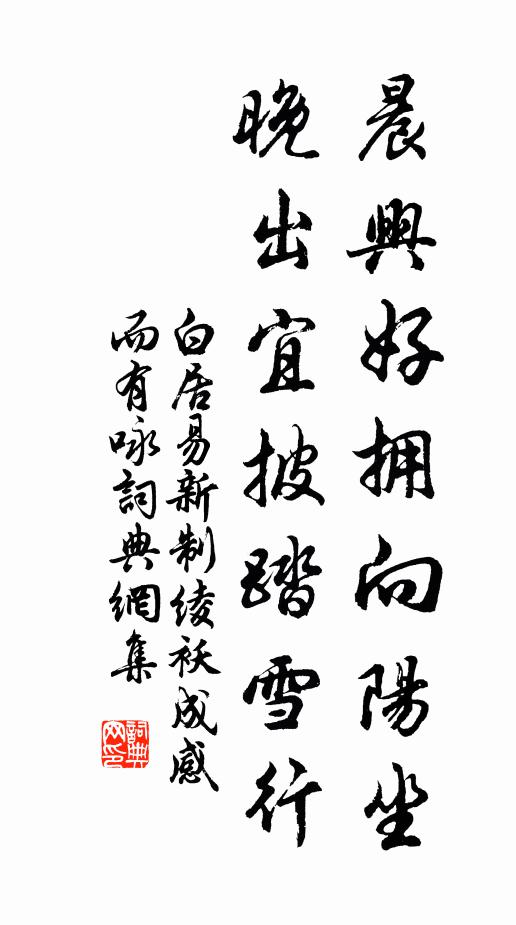 晨興好拥向陽坐
晚出宜披踏雪行
白居易新制綾袄成感
而有咏詞典網集
詞典
网印